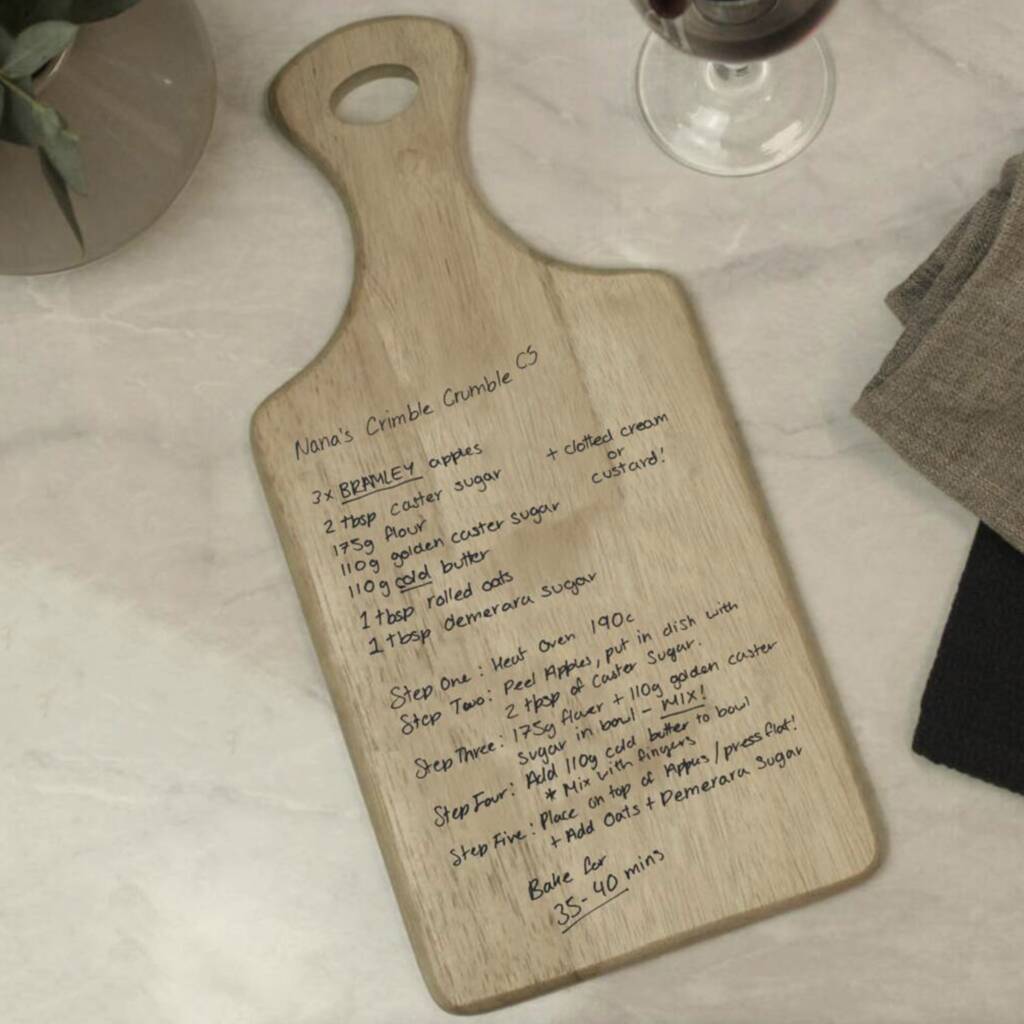 Nana's Crimble Crumble CS
3x BRAMLEY apples
+ clotted cream
or
custard!
2 tbsp caster sugar
175g flour
110g golden caster sugar
110g cold butter
1 tbsp rolled oats
1 tbsp demerara sugar
Step One: Heat Oven 190c
Step Two: Peel Apples, put in dish with
2 tbsp of Caster Sugar.
Step Three: 175g flower + 110g golden caster
sugar in bowl - MIX!
Step Four: Add 110g cold butter to bowl
* Mix with fingers
Step Five: Place on top of Apples/press flat!
+ Add Oats + Demerara Sugar
Bake for
35-40 mins